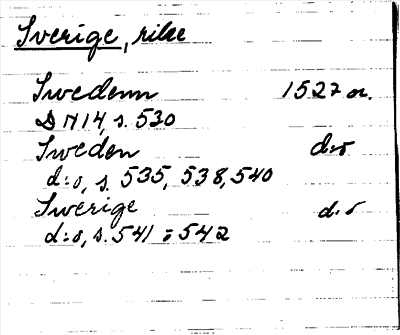 Sverige, rike
Swedenn 1527 or.
DN 14, s. 530
Sweden d:o
d:o, s. 535, 538, 540
Swerige d:o
d:o, s. 541 o 542